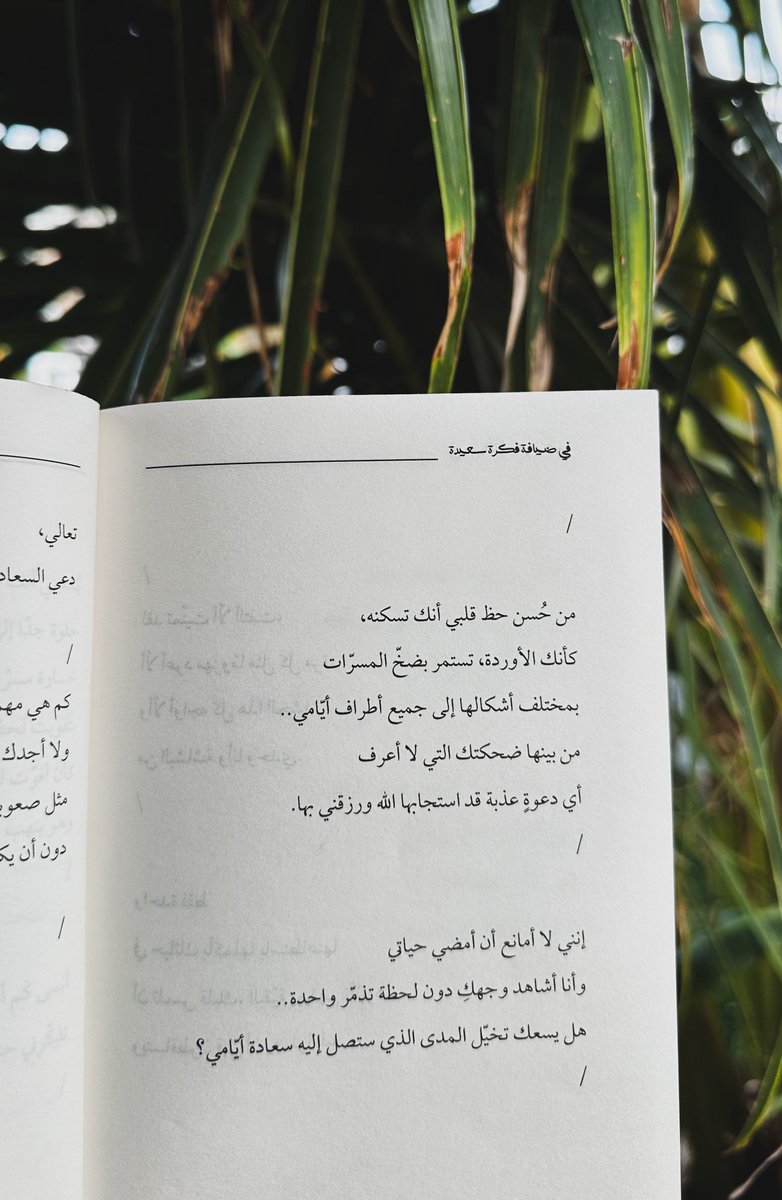 في ضيافة فكرة سعيدة
/
من حُسن حظ قلبي أنك تسكنه،
كأنك الأوردة، تستمر بضخّ المسرّات
بمختلف أشكالها إلى جميع أطراف أيّامي..
من بينها ضحكتك التي لا أعرف
أي دعوةٍ عذبة قد استجابها الله ورزقني بها.
/
إنني لا أمانع أن أمضي حياتي
وأنا أشاهد وجهكِ دون لحظة تذمّر واحدة..
هل يسعك تخيّل المدى الذي ستصل إليه سعادة أيّامي؟
/
تعالي،
دعي
/
كم هي
ولا أجدك
مثل
دون أن
/